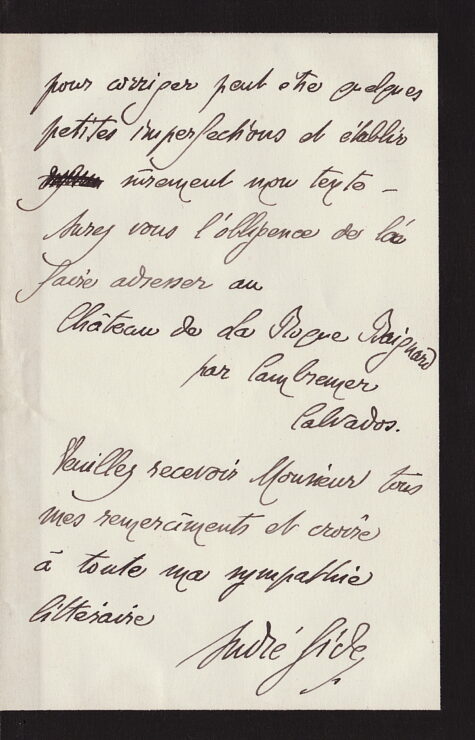 pour corriger peut être quelques
petites imperfections et établir
sûrement mon texte –
Aurez vous l'obligence de la
faire adresser au
Château de La Roque Baignard
par Cambremer
Calvados.
Veuillez recevoir Monsieur tous
mes remercîments et croire
à toute ma sympathie
littéraire
André Gide